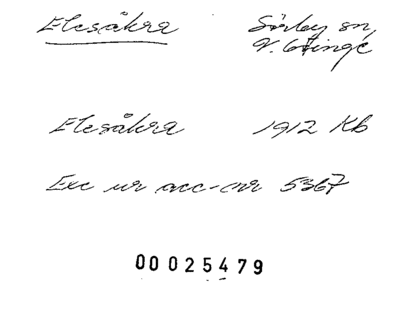 Elesåkra Sörby sn,
V. Göinge
Elesåkra 1912 Kb
Exc ur acc-nr 5367
00025479